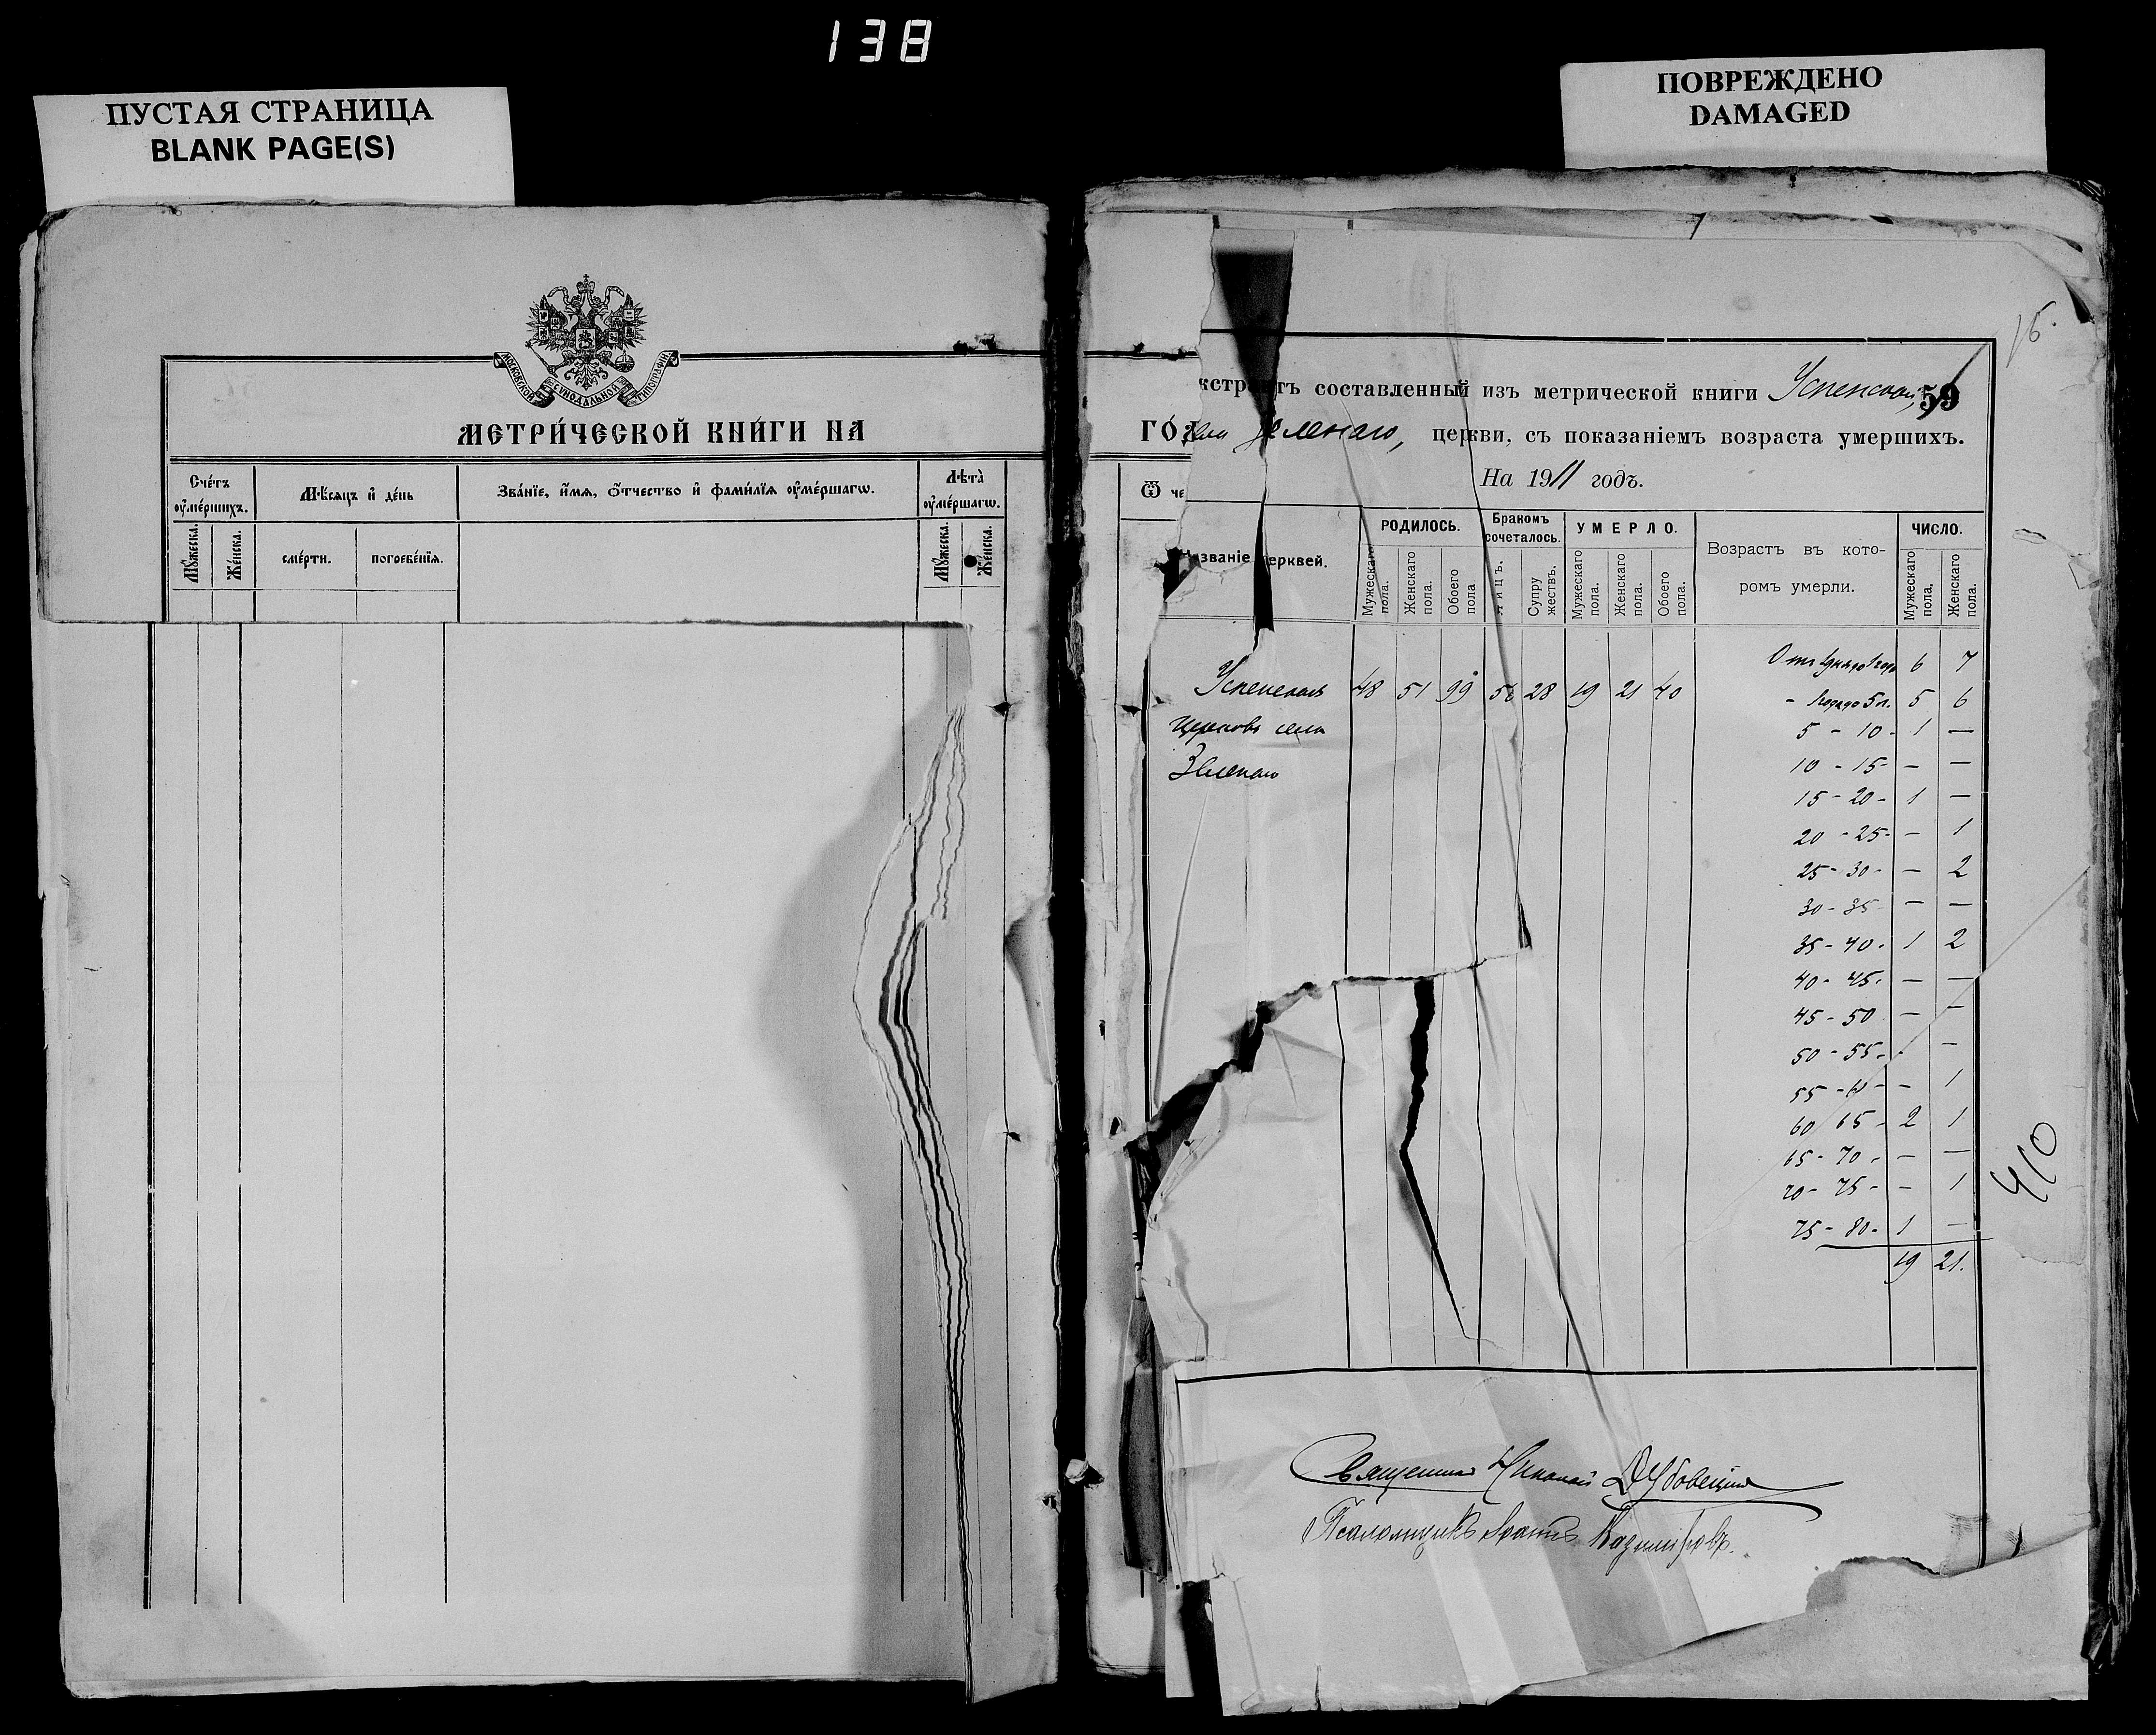 138
ПУСТАЯ СТРАНИЦА
BLANK PAGE(S)
ПОВРЕЖДЕНО
DAMAGED
МОСКОВСКОЙ СѴНОДАЛЬНОЙ ТИПОГРАФІИ
МЕТРИ́ЧЕСКОЙ КНИ́ГИ НА
Сче́тъ ᲂу҆ме́ршихъ.
Мꙋ́жеска.
Же́нска.
Мѣ́сѧцъ и҆ де́нь
сме́рти.
погребе́нїѧ.
Зва́нїе, и҆́мѧ, ѻ҆́тчество и҆ фами́лїѧ ᲂу҆ме́ршагѡ.
Лѣта̀ ᲂу҆ме́ршагѡ.
Мꙋ́жеска.
Же́нска.
ГО́
Ѿ че
16.
59
кстрактъ составленный изъ метрической книги Успенской,
села Зеленаго, церкви, съ показаніемъ возраста умершихъ.
На 1911 годъ.
Названіе церквей.
РОДИЛОСЬ.
Мужескаго пола.
Женскаго пола.
Обоего пола
Бракомъ сочеталось.
Лицъ.
Супружествъ.
УМЕРЛО.
Мужескаго пола.
Женскаго пола.
Обоего пола.
Возрастъ въ которомъ умерли.
ЧИСЛО.
Мужескаго пола.
Женскаго пола.
Успенская 48 51 99 56 28 19 21 40
церковь села
Зеленаго
6 7
- 1 года до 5 л. 5 6
5 - 10 - 1 —
10 - 15 - — —
15 - 20 - 1 —
20 - 25 - — 1
25 - 30 - — 2
30 - 35 — —
35 - 40 - 1 2
40 - 45 - — —
45 - 50 — —
50 - 55 - —
55 - 60 - — 1
60 65 - 2 1
65 - 70 - — —
70 - 75 - — 1
75 - 80 - 1 —
19 21.
410
Священникъ Николай Дубовецкій
Псаломщикъ Казиміровъ.